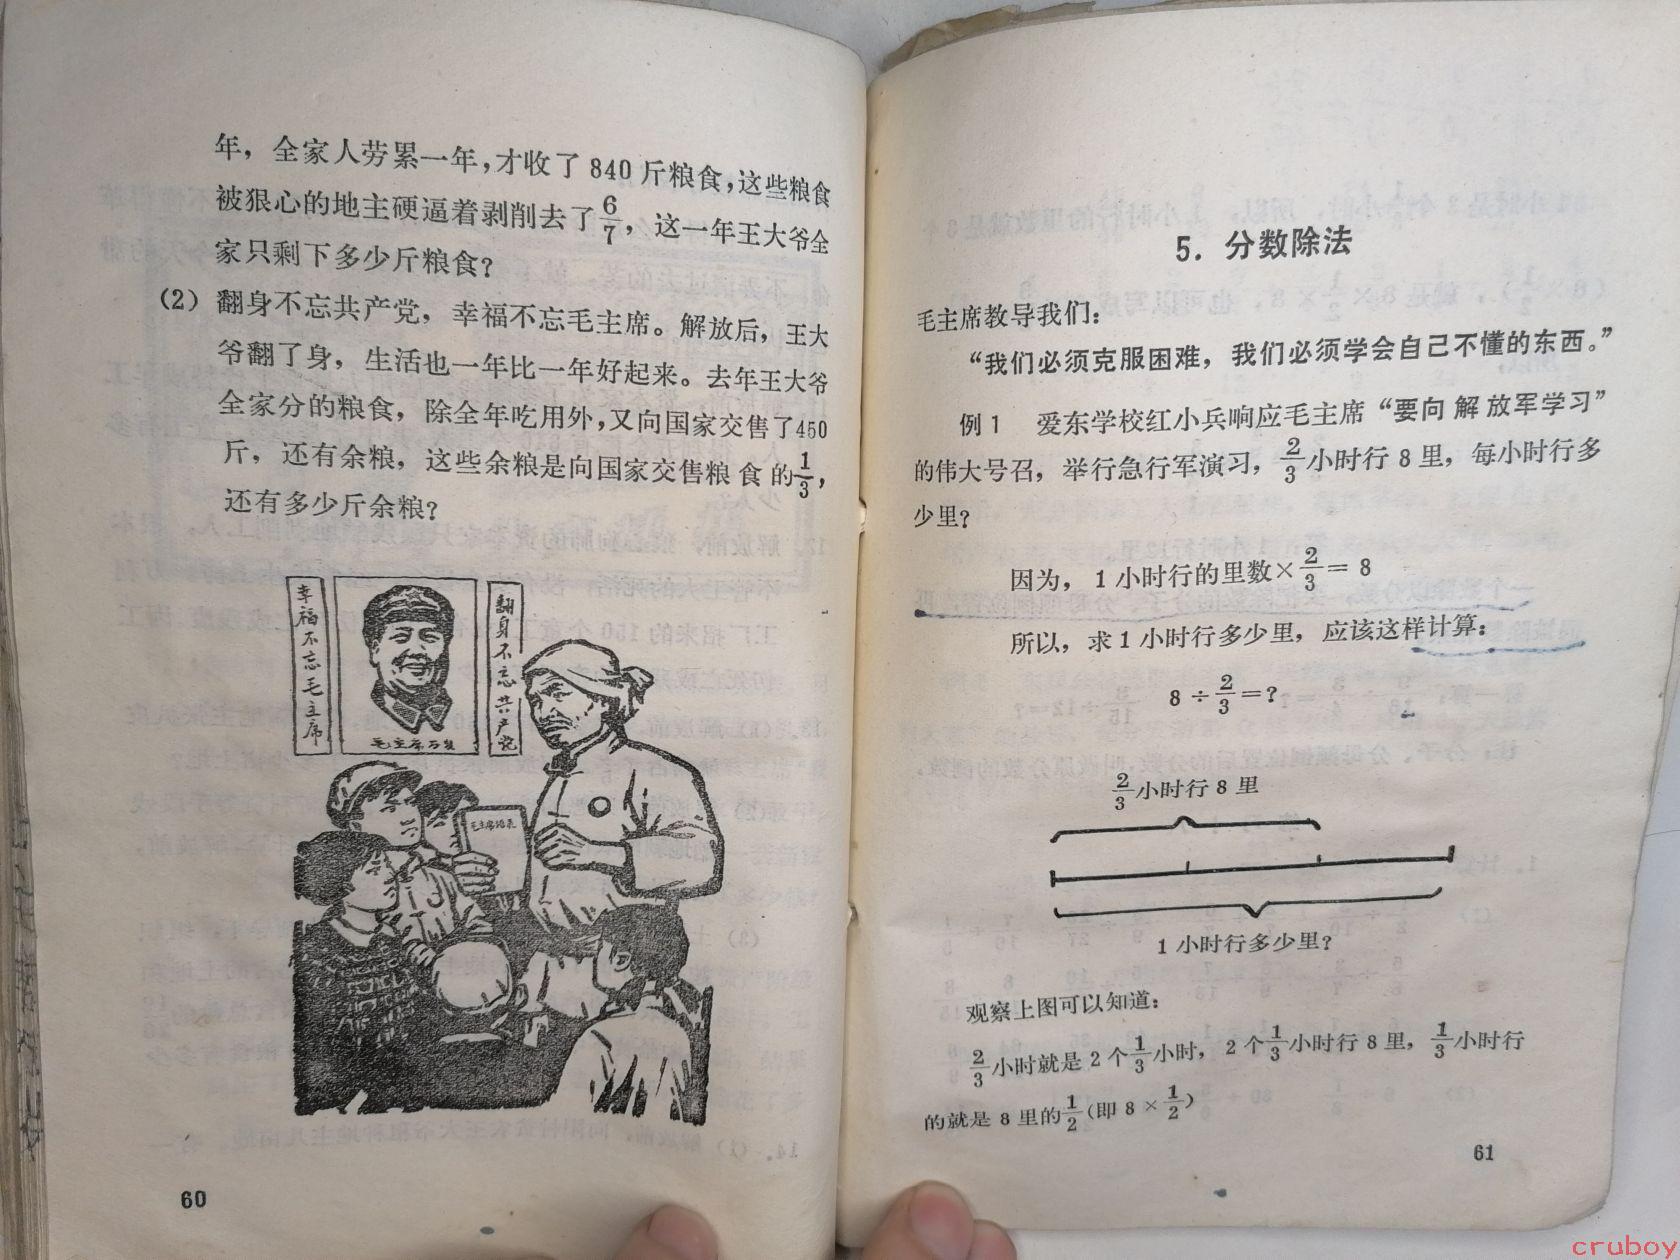 年，全家人劳累一年，才收了 840 斤粮食，这些粮食
被狠心的地主硬逼着剥削去了 6/7，这一年王大爷全
家只剩下多少斤粮食？
（2）翻身不忘共产党，幸福不忘毛主席。解放后，王大
爷翻了身，生活也一年比一年好起来。去年王大爷
全家分的粮食，除全年吃用外，又向国家交售了450
斤，还有余粮，这些余粮是向国家交售粮食的 1/3，
还有多少斤余粮？
幸福不忘毛主席
毛主席万岁
翻身不忘共产党
毛主席语录
60
5．分数除法
毛主席教导我们：
“我们必须克服困难，我们必须学会自己不懂的东西。”
例 1 爱东学校红小兵响应毛主席“要向解放军学习”
的伟大号召，举行急行军演习，2/3 小时行 8 里，每小时行多
少里？
因为，1 小时行的里数× 2/3 = 8
所以，求 1 小时行多少里，应该这样计算：
8 ÷ 2/3 = ?
2/3 小时行 8 里
1 小时行多少里？
观察上图可以知道：
2/3 小时就是 2 个 1/3 小时，2 个 1/3 小时行 8 里，1/3 小时行
的就是 8 里的 1/2（即 8 × 1/2）
61
cruboy